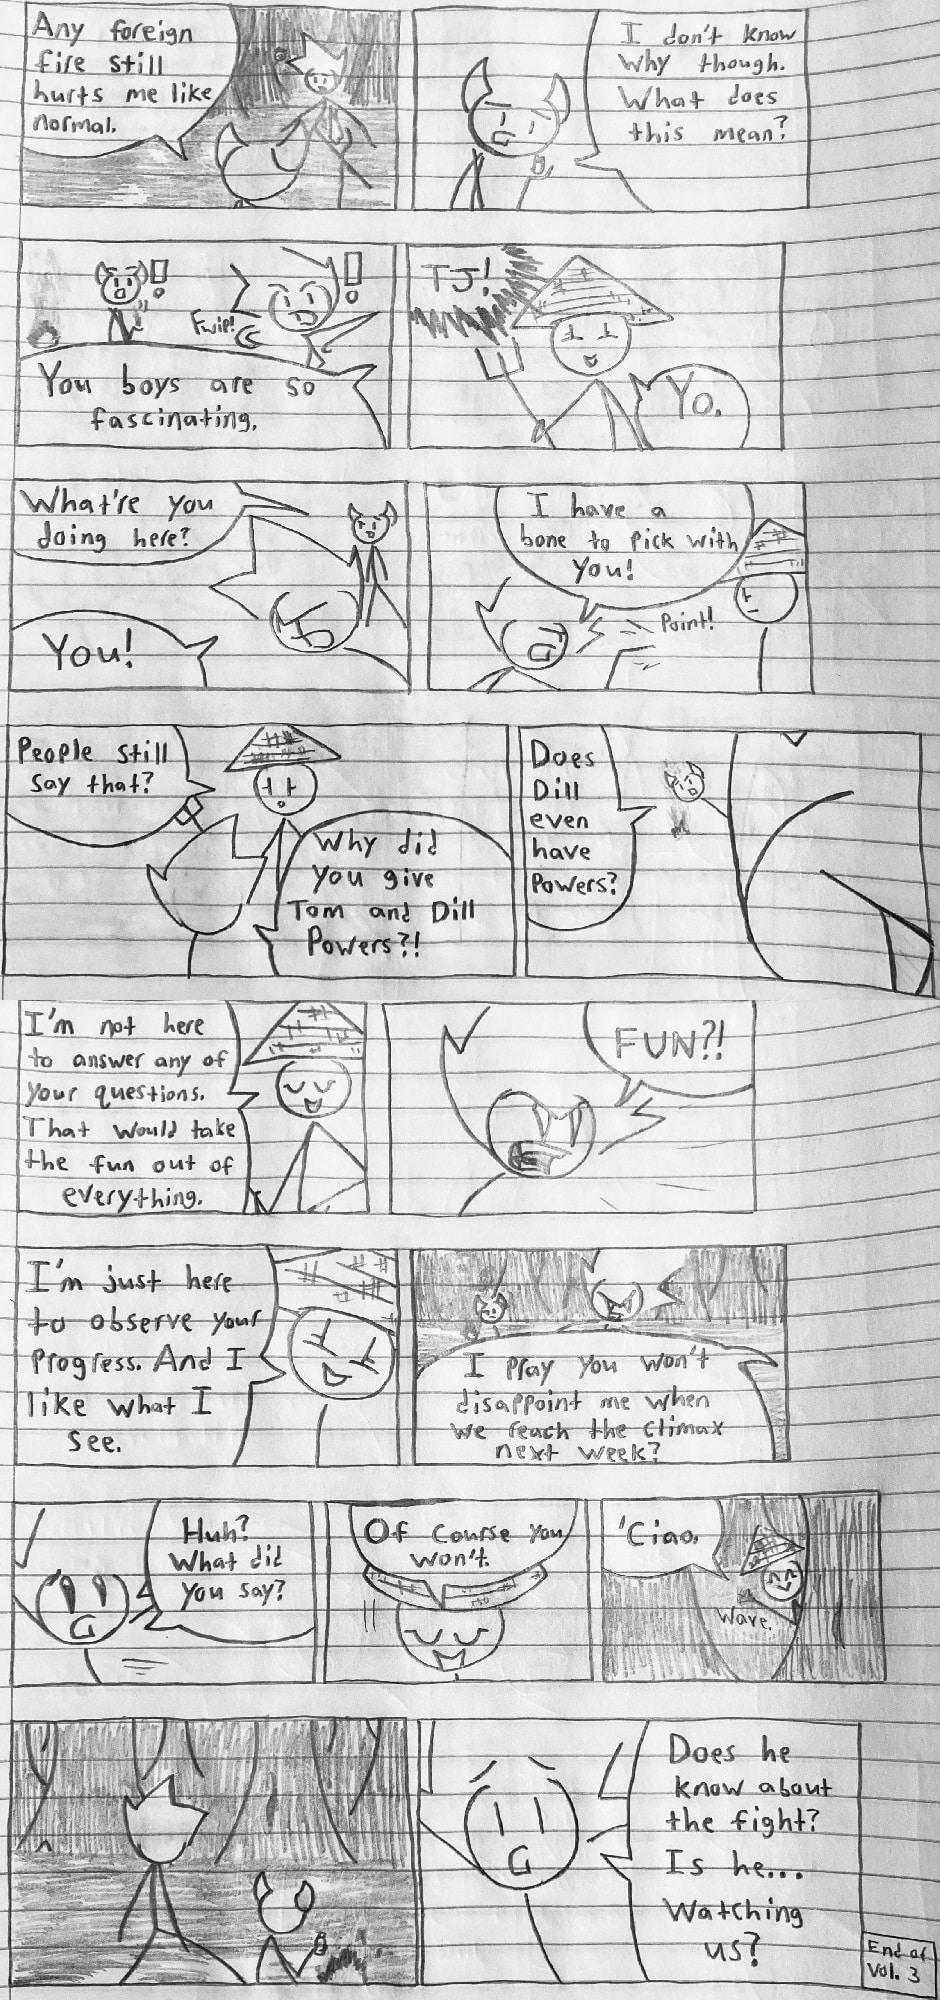 Any foreign
fire still
hurts me like
normal.
I don't know
why though.
What does
this mean?
!
Fwip!
!
You boys are so
fascinating.
TJ!
Yo.
What're you
doing here?
You!
I have a
bone to pick with
you!
Point!
People still
say that?
Why did
you give
Tom and Dill
Powers?!
Does
Dill
even
have
Powers?
I'm not here
to answer any of
your questions.
That would take
the fun out of
everything.
FUN?!
I'm just here
to observe your
progress. And I
like what I
see.
I pray you won't
disappoint me when
we reach the climax
next week?
Huh?
What did
you say?
Of course you
won't.
'Ciao.
Wave.
Does he
know about
the fight?
Is he...
Watching
us?
End of
Vol. 3